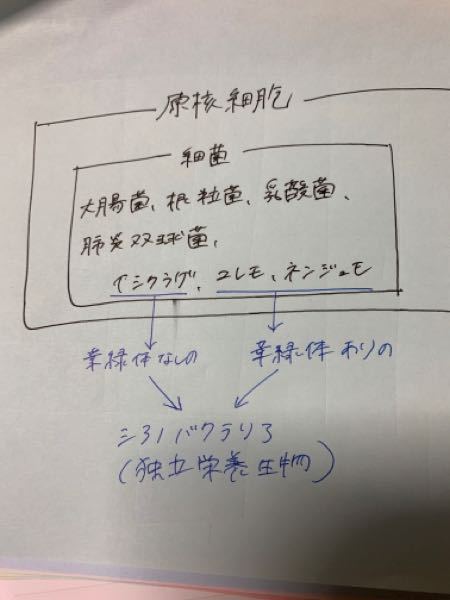 原核細胞
細菌
大腸菌、根粒菌、乳酸菌、
肺炎双球菌、
イシクラゲ、ユレモ、ネンジュモ
葉緑体なしの
葉緑体ありの
シアノバクテリア
(独立栄養生物)